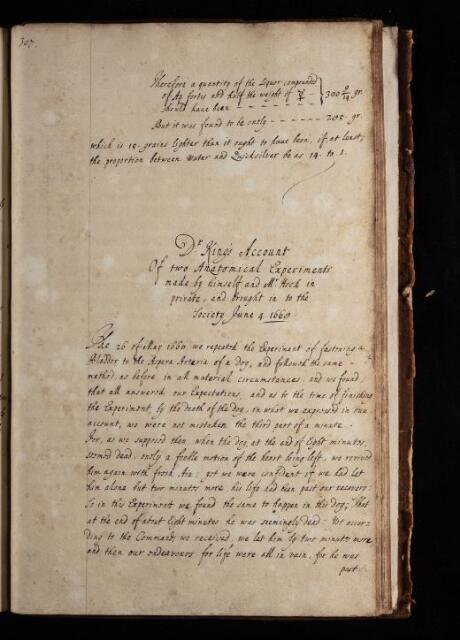 307.
Therefore a quantity of the Liquor, compounded
of Aq fortis and half the weight of ☿
should have been - - - - - - - } 300 9/14 gr.
But it was found to be only - - - - - - - 285 gr.
which is 15 grains lighter than it ought to have been, if at least,
the proportion between water and Quicksilver be as 14 to 1.
Dr. King's Account
Of two Anatomical Experiments
made by himself and Mr. Hook in
private, and brought in to the
Society June 4
The 26 of May we repeated the Experiment of fastning a
Bladder to the Aspera Arteria of a Dog, and followed the same -
method, as before, in all material circumstances, and we found
that all answered our Expectations, and as to the time of finishing
the Experiment, by the death of the Dog, in what we expressed in our
account, we were not mistaken the third part of a minute.
For, as we supposed then, when the dog at the end of Eight minutes,
seemed dead, only a feeble motion of the heart being left, we revived
him again with fresh Air: yet we were confident if we had let
him alone but two minutes more, his life had been past our recovery:
So in this Experiment we found the same to happen in this dog; That
at the end of about Eight minutes he was seemingly dead: Yet accor-
ding to the Commands we received, we let him ly two minutes more
and then our endeavours for life were all in vain, for he was
past